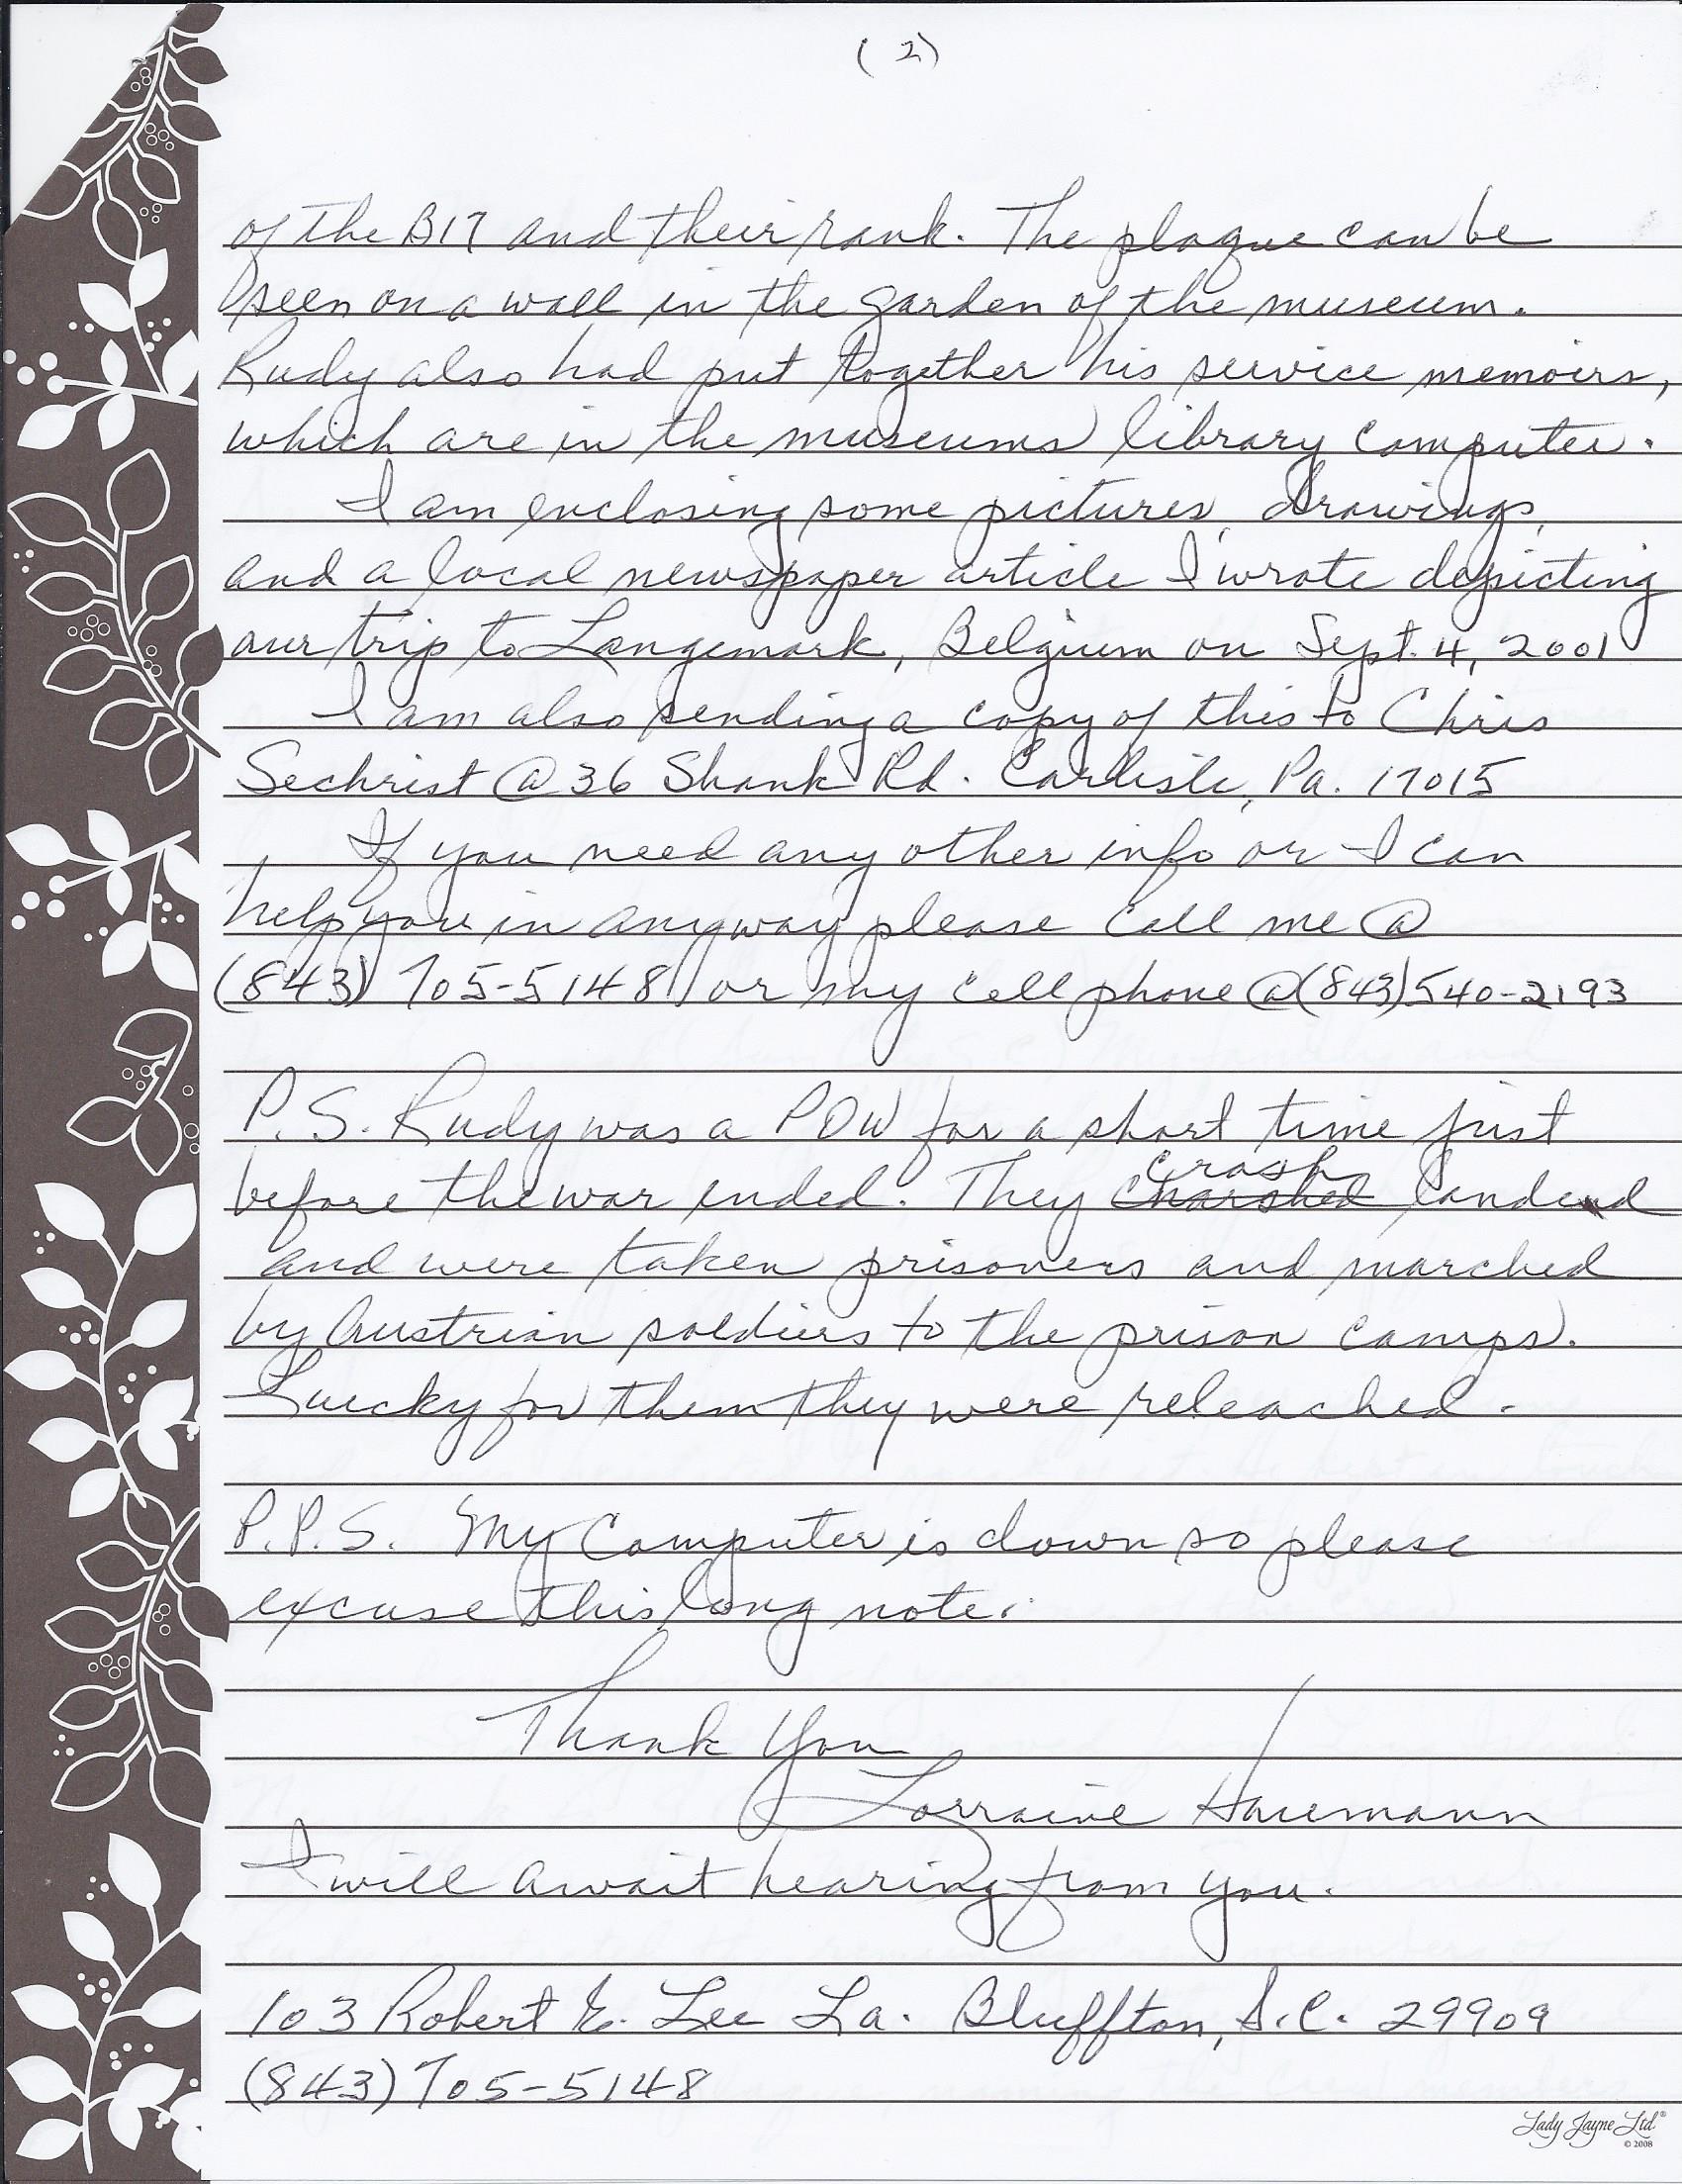 (2)
of the B17 and their rank. The plaque can be
seen on a wall in the garden of the museum.
Rudy also had put together his service memoirs,
which are in the museums library computer.
I am enclosing some pictures, drawings,
and a local newspaper article I wrote depicting
our trip to Langemark, Belgium on Sept. 4, 2001
I am also sending a copy of this to Chris
Sechrist @ 36 Shank Rd. Carlisle, Pa. 17015
If you need any other info or I can
help you in anyway please call me @
(843) 705-5148 or my cell phone @ (843) 540-2193
P.S. Rudy was a POW for a short time just
before the war ended. They crash landed
and were taken prisoners and marched
by Austrian soldiers to the prison camps.
Luecky for them they were releached.
P.P.S. My Computer is down so please
excuse this long note.
Thank You
Lorraine Hauemann
I will await hearing from you.
103 Robert E. Lee La. Bluffton, S.C. 29909
(843) 705-5148
Lady Jayne Ltd.®
© 2008